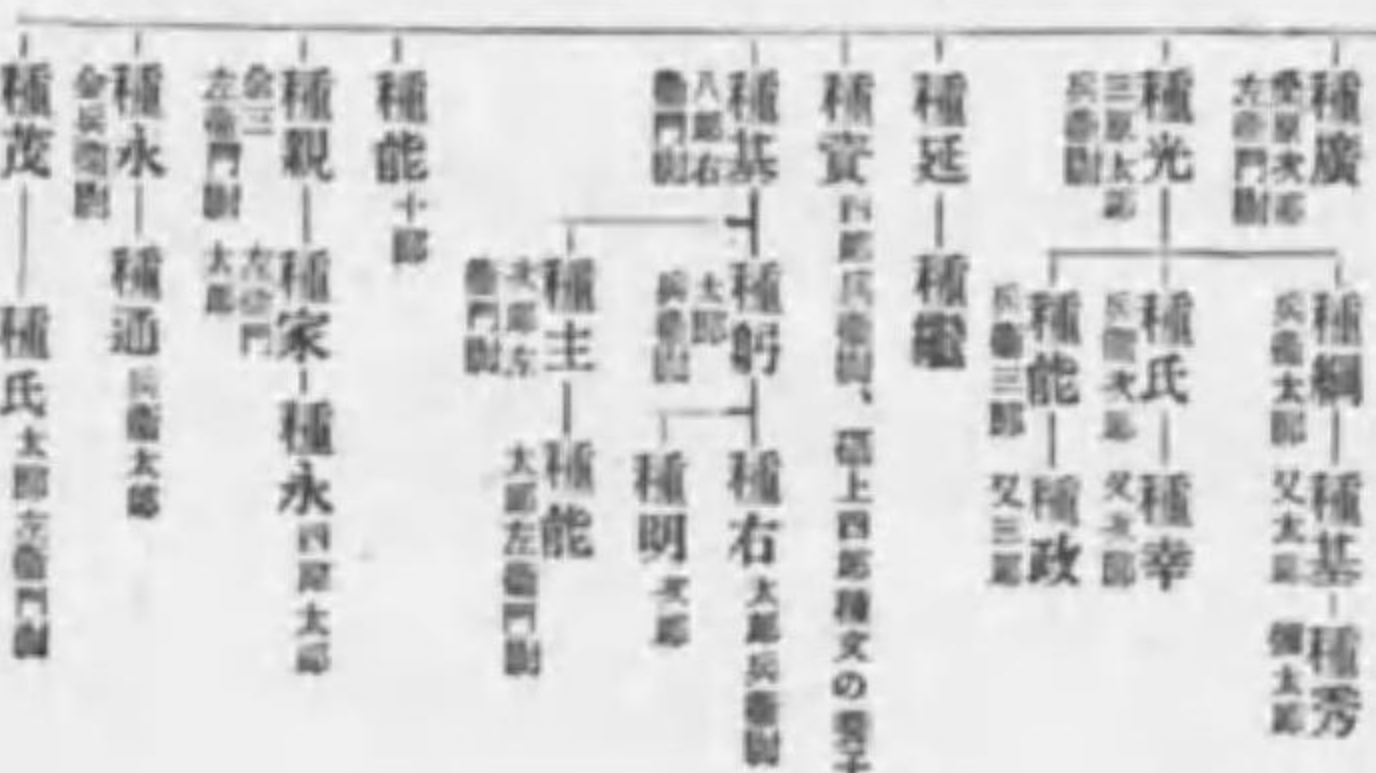 種廣
次郎
左衞門尉
種光
三原太郎
兵衞尉
種綱
兵衞太郎
種基
又太郎
種秀
彌太郎
種氏
兵衞次郎
種幸
又次郎
種能
兵衞三郎
種政
又三郎
種延
種繼
種資
四郎兵衞尉、
上四郎種文の養子
種基
八郎右
衞門尉
種躬
太郎
兵衞尉
種右
太郎兵衞尉
種明
次郎
種主
次郎左
衞門尉
種能
太郎左衞門尉
種能
十郎
種親
左衞門尉
種家
左衞門
太郎
種永
四郎太郎
種永
兵衞尉
種通
兵衞太郎
種茂
種氏
太郎左衞門尉